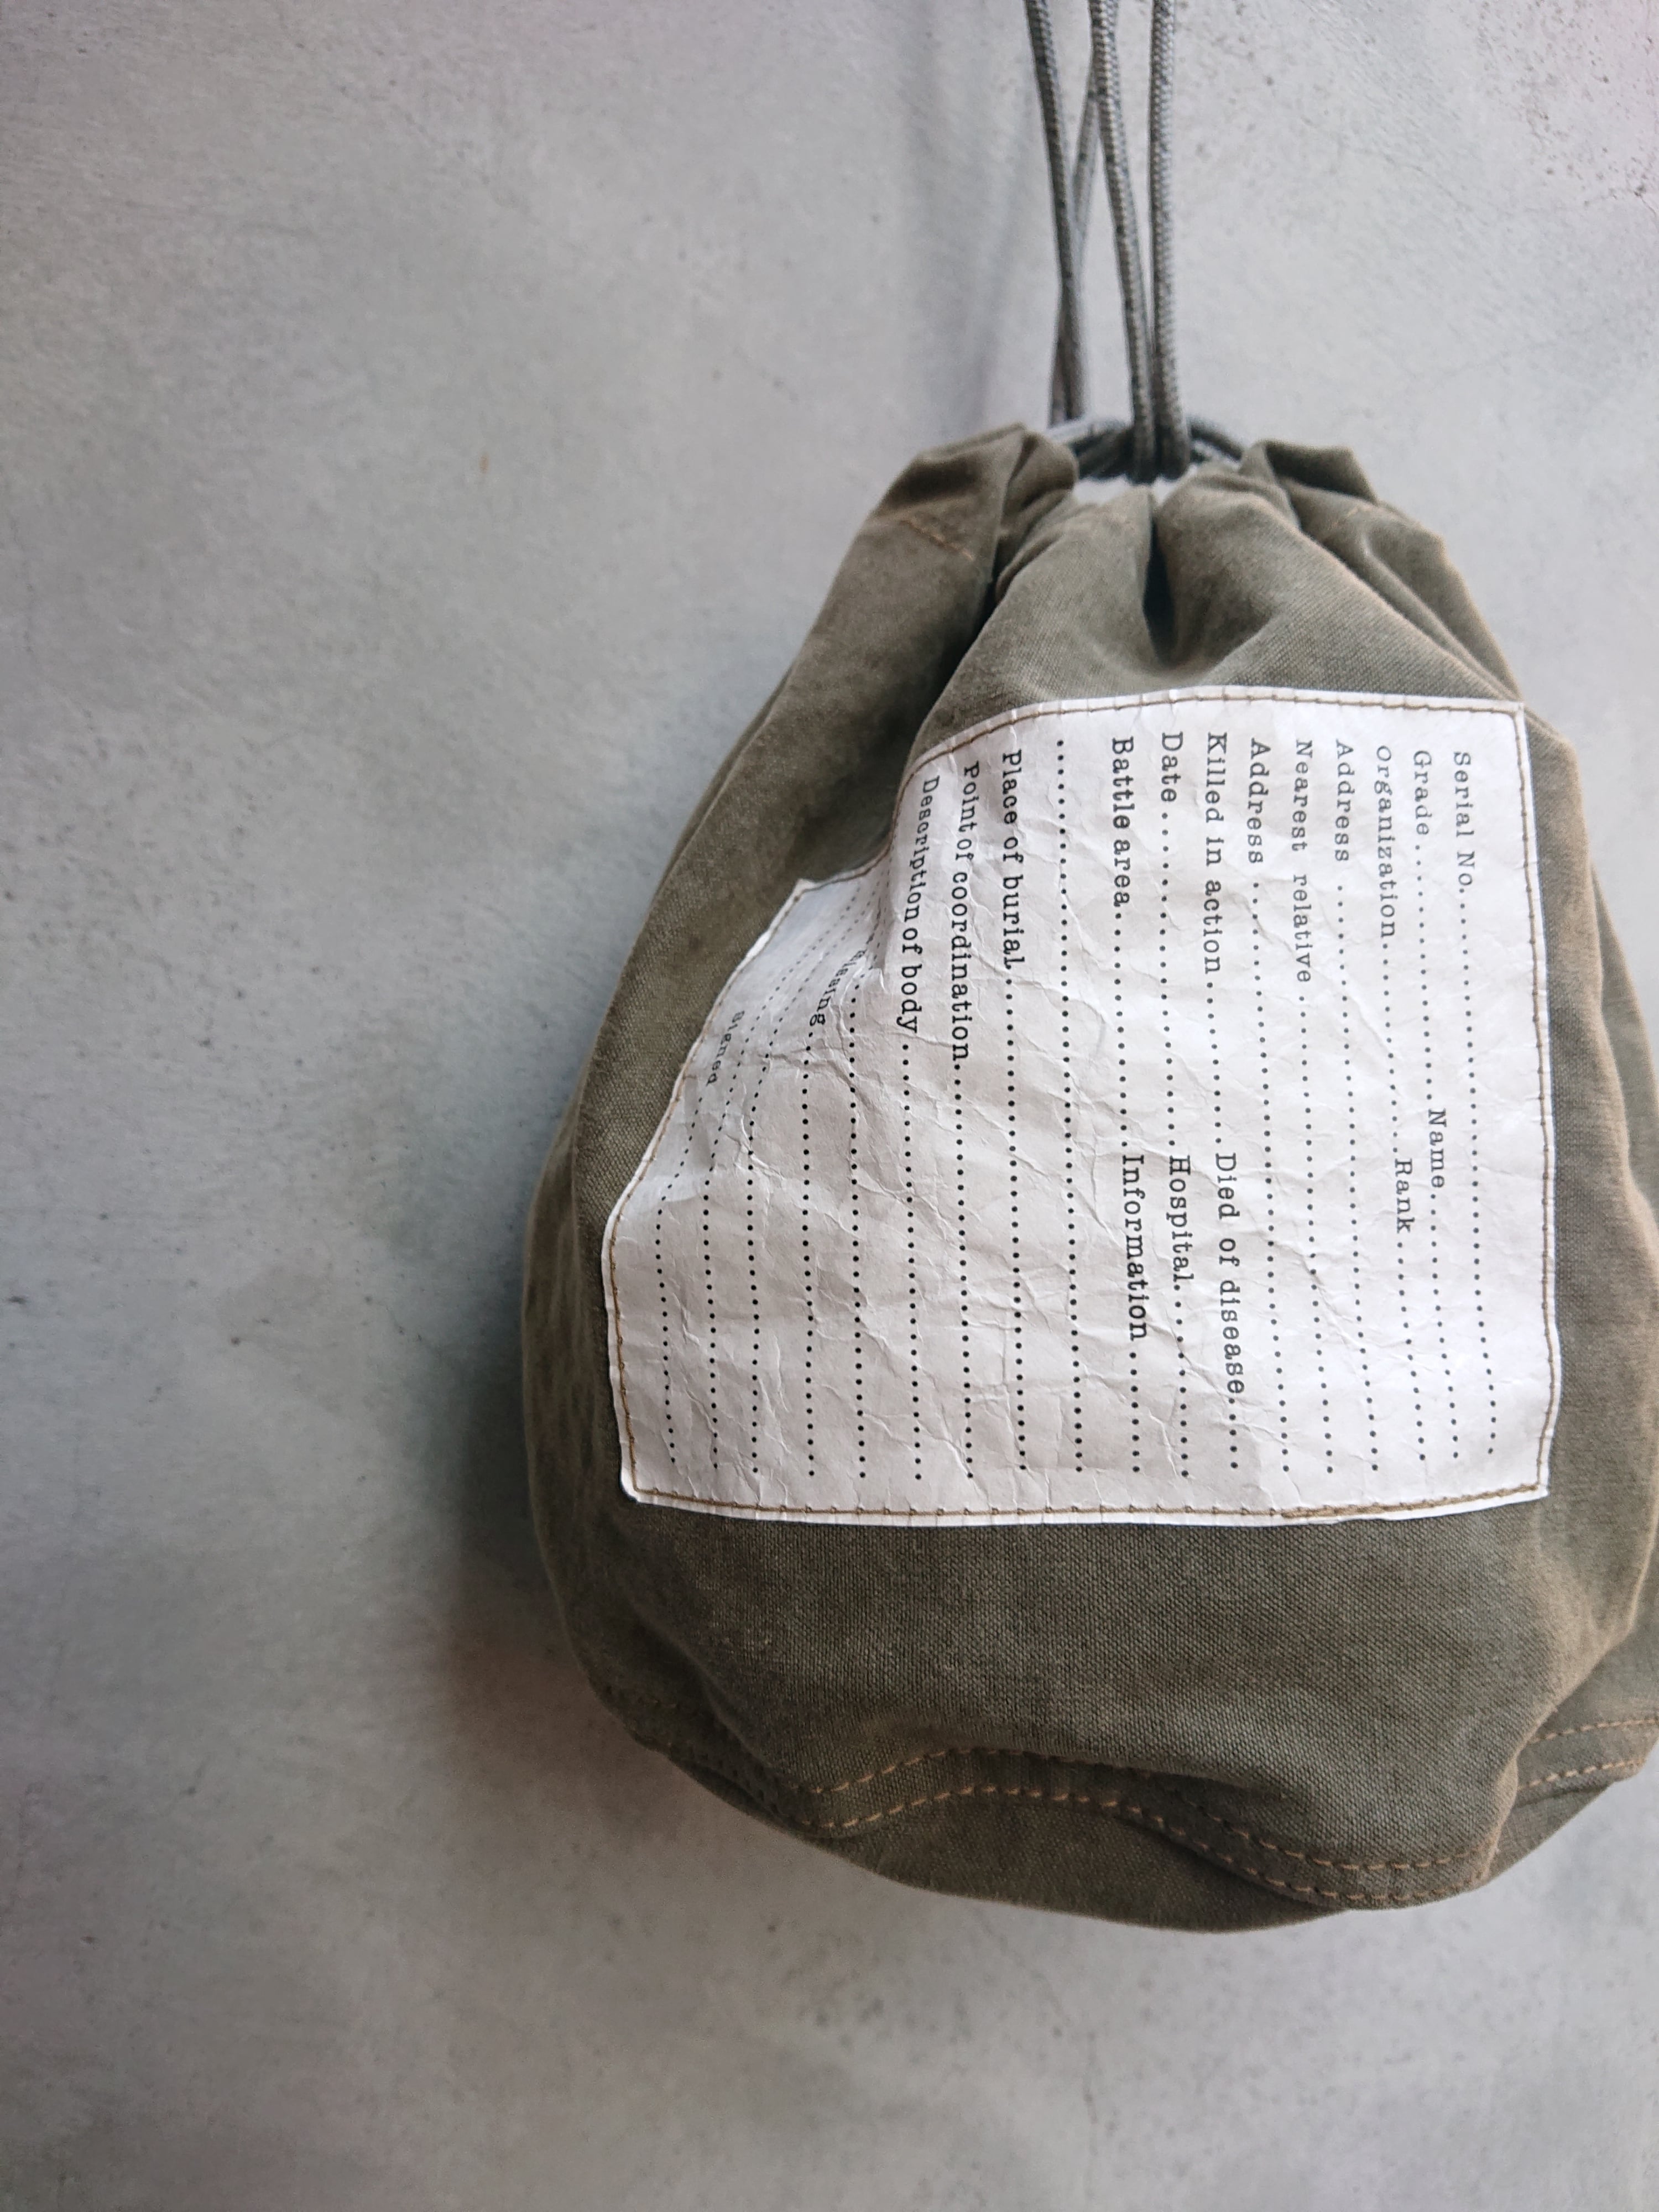 Serial No........................................
Grade.................Name.................
Organization.............Rank.............
Address ........................................
Nearest relative ..............................
Address ........................................
Killed in action...........Died of disease.....
Date......................Hospital.............
Battle area...............Information..........
................................................
Place of burial.................................
Point of coordination...........................
Description of body.............................
................................................
................................................
................................................
Signed..........................................